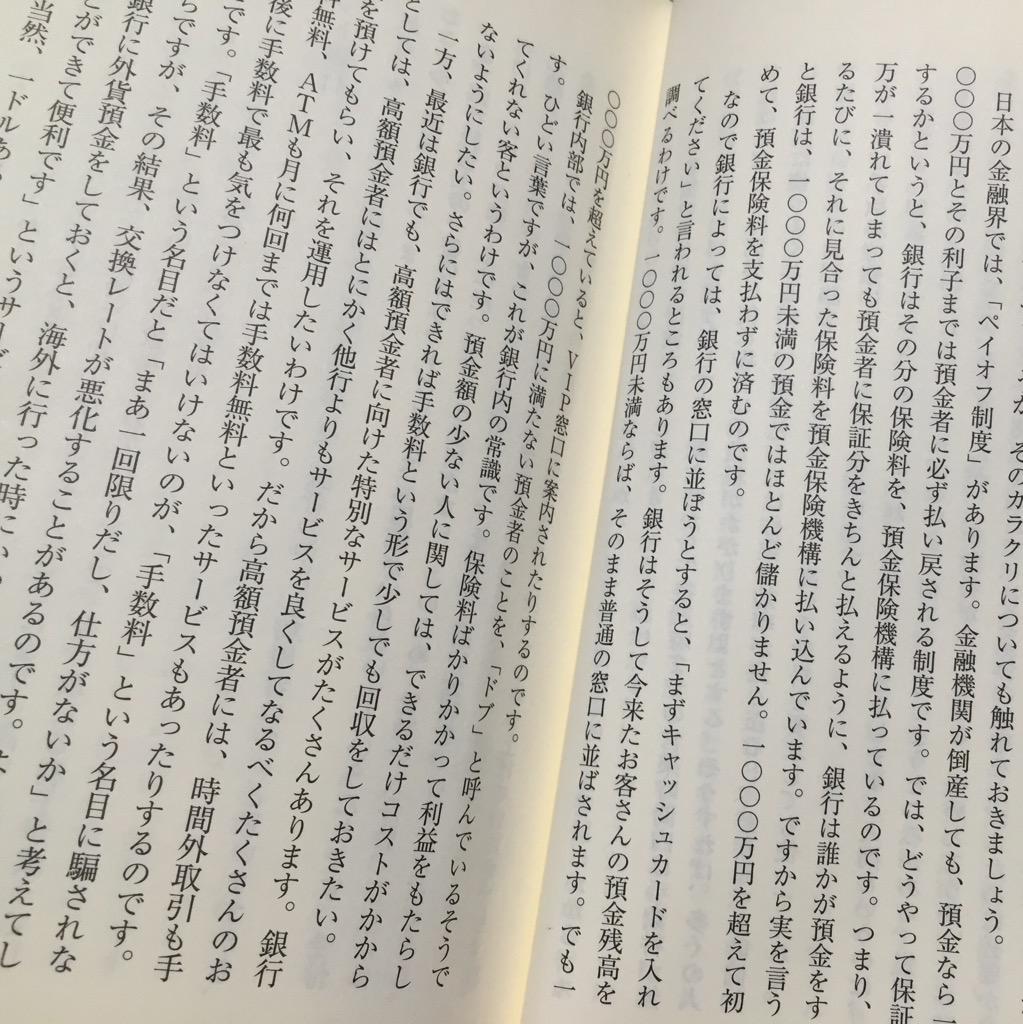 そのカラクリについても触れておきましょう。
日本の金融界では、「ペイオフ制度」があります。金融機関が倒産しても、預金なら一
〇〇〇万円とその利子までは預金者に必ず払い戻される制度です。では、どうやって保証
するかというと、銀行はその分の保険料を、預金保険機構に払っているのです。つまり、
万が一潰れてしまっても預金者に保証分をきちんと払えるように、銀行は誰かが預金をす
るたびに、それに見合った保険料を預金保険機構に払い込んでいます。ですから実を言う
と銀行は、一〇〇〇万円未満の預金ではほとんど儲かりません。一〇〇〇万円を超えて初
めて、預金保険料を支払わずに済むのです。
なので銀行によっては、銀行の窓口に並ぼうとすると、「まずキャッシュカードを入れ
てください」と言われるところもあります。銀行はそうして今来たお客さんの預金残高を
調べるわけです。一〇〇〇万円未満ならば、そのまま普通の窓口に並ばされます。でも一
〇〇〇万円を超えていると、VIP窓口に案内されたりするのです。
銀行内部では、一〇〇〇万円に満たない預金者のことを、「ドブ」と呼んでいるそうで
す。ひどい言葉ですが、これが銀行内の常識です。保険料ばかりかかって利益をもたらし
てくれない客というわけです。預金額の少ない人に関しては、できるだけコストがかから
ないようにしたい。さらにはできれば手数料という形で少しでも回収をしておきたい。
一方、最近は銀行でも、高額預金者に向けた特別なサービスがたくさんあります。銀行
としては、高額預金者にはとにかく他行よりもサービスを良くしてなるべくたくさんのお
を預けてもらい、それを運用したいわけです。だから高額預金者には、時間外取引も手
無料、ATMも月に何回までは手数料無料といったサービスもあったりするのです。
後に手数料で最も気をつけなくてはいけないのが、「手数料」という名目に騙されな
です。「手数料」という名目だと「まあ一回限りだし、仕方がないか」と考えてし
ちですが、その結果、交換レートが悪化することがあるのです。
銀行に外貨預金をしておくと、海外に行った時に
とができて便利です」というサービ
当然、一ドルあ